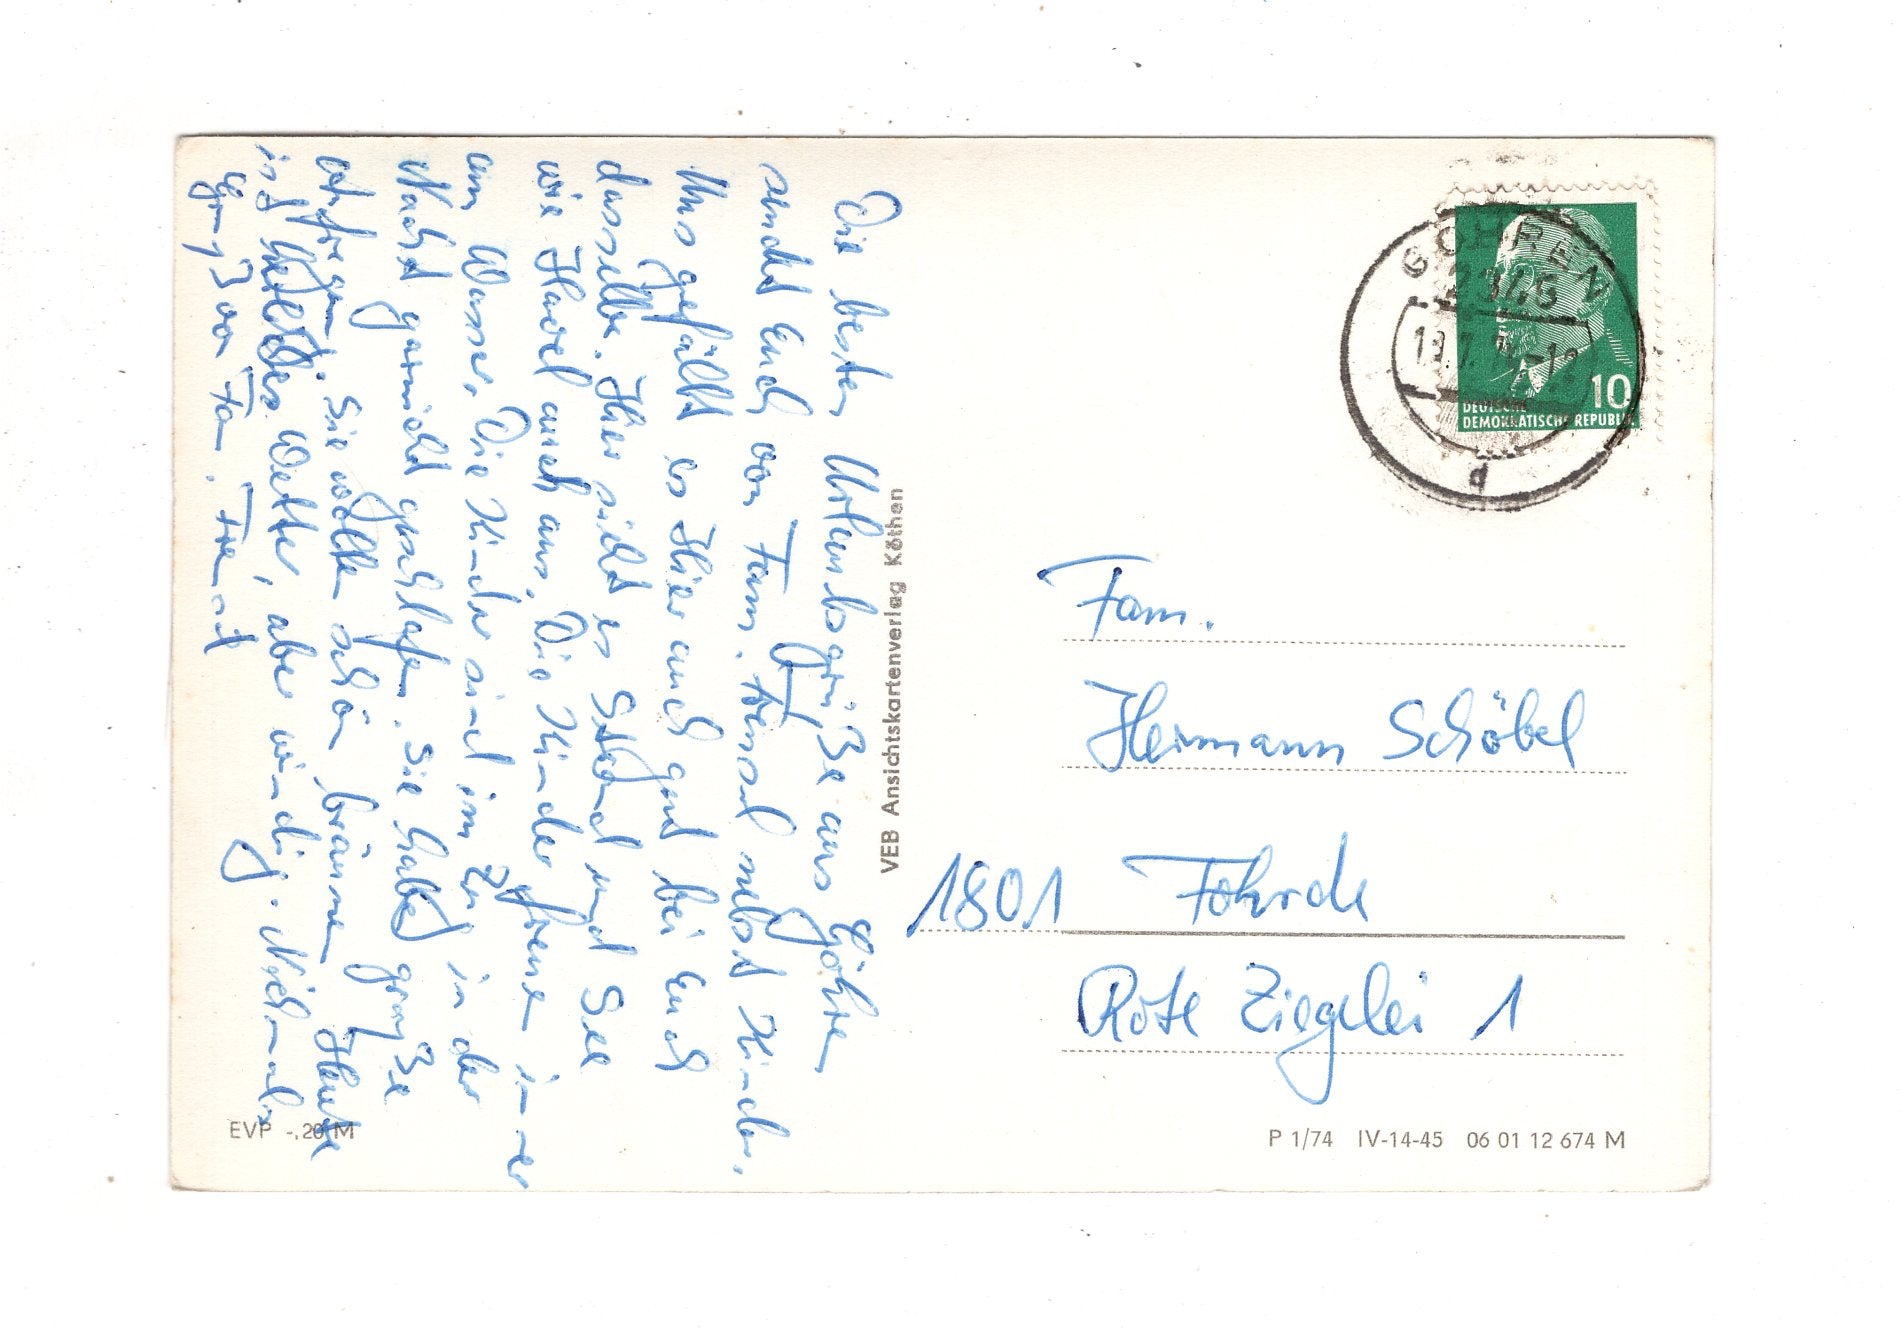 Die besten Urlaubsgrüße aus Göhren
sendet Euch von Fam. nebst Kinder.
Uns gefällt es Hier auch gut bei Euch
dasselbe. Hier sieht es Strand und See
wie Havel auch aus. Die Kinder freuen immer
am Wasser. Die Kinder sind im Zug in der
Nacht garnicht geschlafen. Sie haben große
Aufregung. Sie wollen schön bräunen Heute
ist Wetter, aber windig. Nochmals
Gruß von Fam.
VEB Ansichtskartenverlag Köthen
GÖHREN
2345
DEUTSCHE
DEMOKRATISCHE REPUBLIK
10
d
Fam.
Hermann Schöbel
1801 Fohrde
Rote Ziegelei 1
EVP -,20 M
P 1/74 IV-14-45 06 01 12 674 M